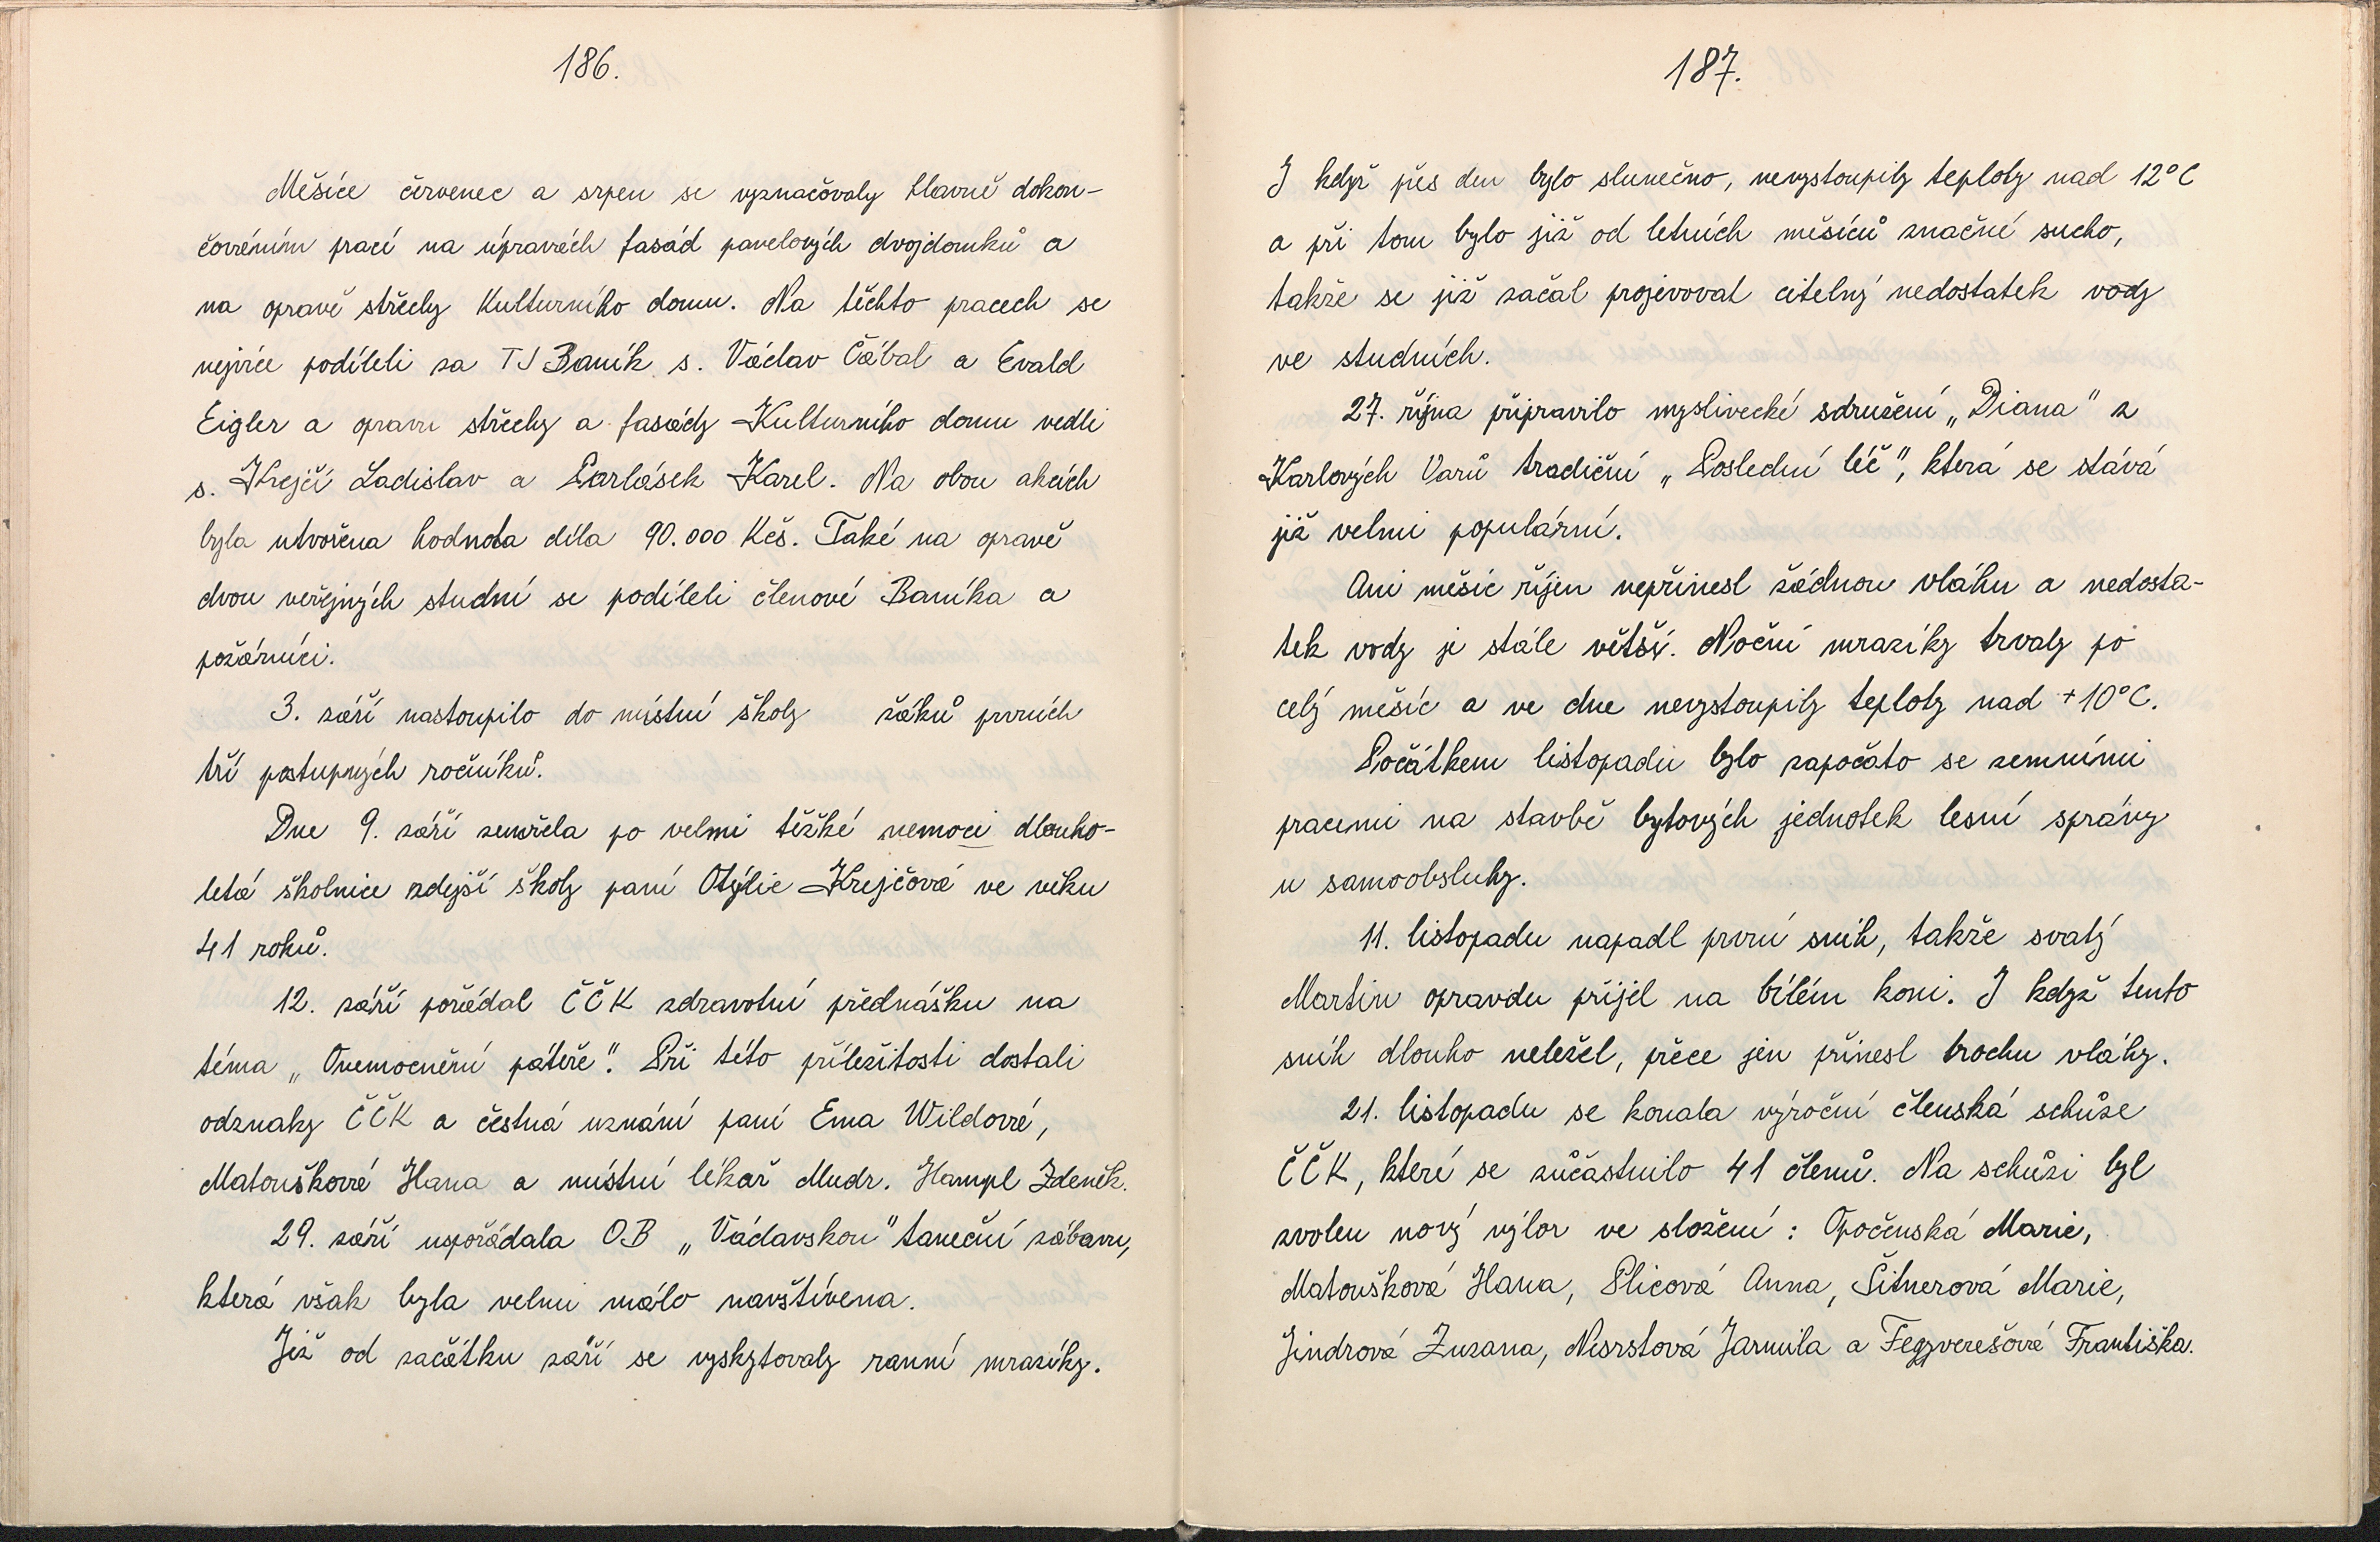 186.
Měsíce červenec a srpen se vyznačovaly hlavně dokon-
čováním prací na úpravách fasád panelových dvojdomků a
na opravě střechy Kulturního domu. Na těchto pracech se
nejvíce podíleli za TJ Baník s. Václav Cábal a Evald
Eigler a opravu střechy a fasády Kulturního domu vedli
s. Krejčí Ladislav a Parlásek Karel. Na obou akcích
byla utvořena hodnota díla 90.000 Kčs. Také na opravě
dvou veřejných studní se podíleli členové Baníka a
požárníci.
3. září nastoupilo do místní školy žáků prvních
tří postupných ročníků.
Dne 9. září zemřela po velmi těžké nemoci dlouho-
letá školnice zdejší školy paní Otýlie Krejčová ve věku
41 roků.
12. září pořádal ČČK zdravotní přednášku na
téma „Onemocnění páteře". Při této příležitosti dostali
odznaky ČČK a čestná uznání paní Ema Wildová,
Matoušková Hana a místní lékař Mudr. Hampl Zdeněk.
29. září uspořádala OB „Václavskou" taneční zábavu,
která však byla velmi málo navštívena.
Již od začátku září se vyskytovaly ranní mrazíky.
187.
I když přes den bylo slunečno, nevystoupily teploty nad 12°C
a při tom bylo již od letních měsíců značné sucho,
takže se již začal projevovat citelný nedostatek vody
ve studních.
27. října připravilo myslivecké sdružení „Diana" z
Karlových Varů tradiční „Poslední léč", která se stává
již velmi populární.
Ani měsíc říjen nepřinesl žádnou vláhu a nedosta-
tek vody je stále větší. Noční mrazíky trvaly po
celý měsíc a ve dne nevystoupily teploty nad +10°C.
Počátkem listopadu bylo započato se zemními
pracemi na stavbě bytových jednotek lesní správy
u samoobsluhy.
11. listopadu napadl první sníh, takže svatý
Martin opravdu přijel na bílém koni. I když tento
sníh dlouho neležel, přece jen přinesl trochu vláhy.
21. listopadu se konala výroční členská schůze
ČČK, které se zůčástnilo 41 členů. Na schůzi byl
zvolen nový výbor ve složení: Opočenská Marie,
Matoušková Hana, Plicová Anna, Šitnerová Marie,
Jindrová Zuzana, Nesrstová Jarmila a Fegyverešová Františka.